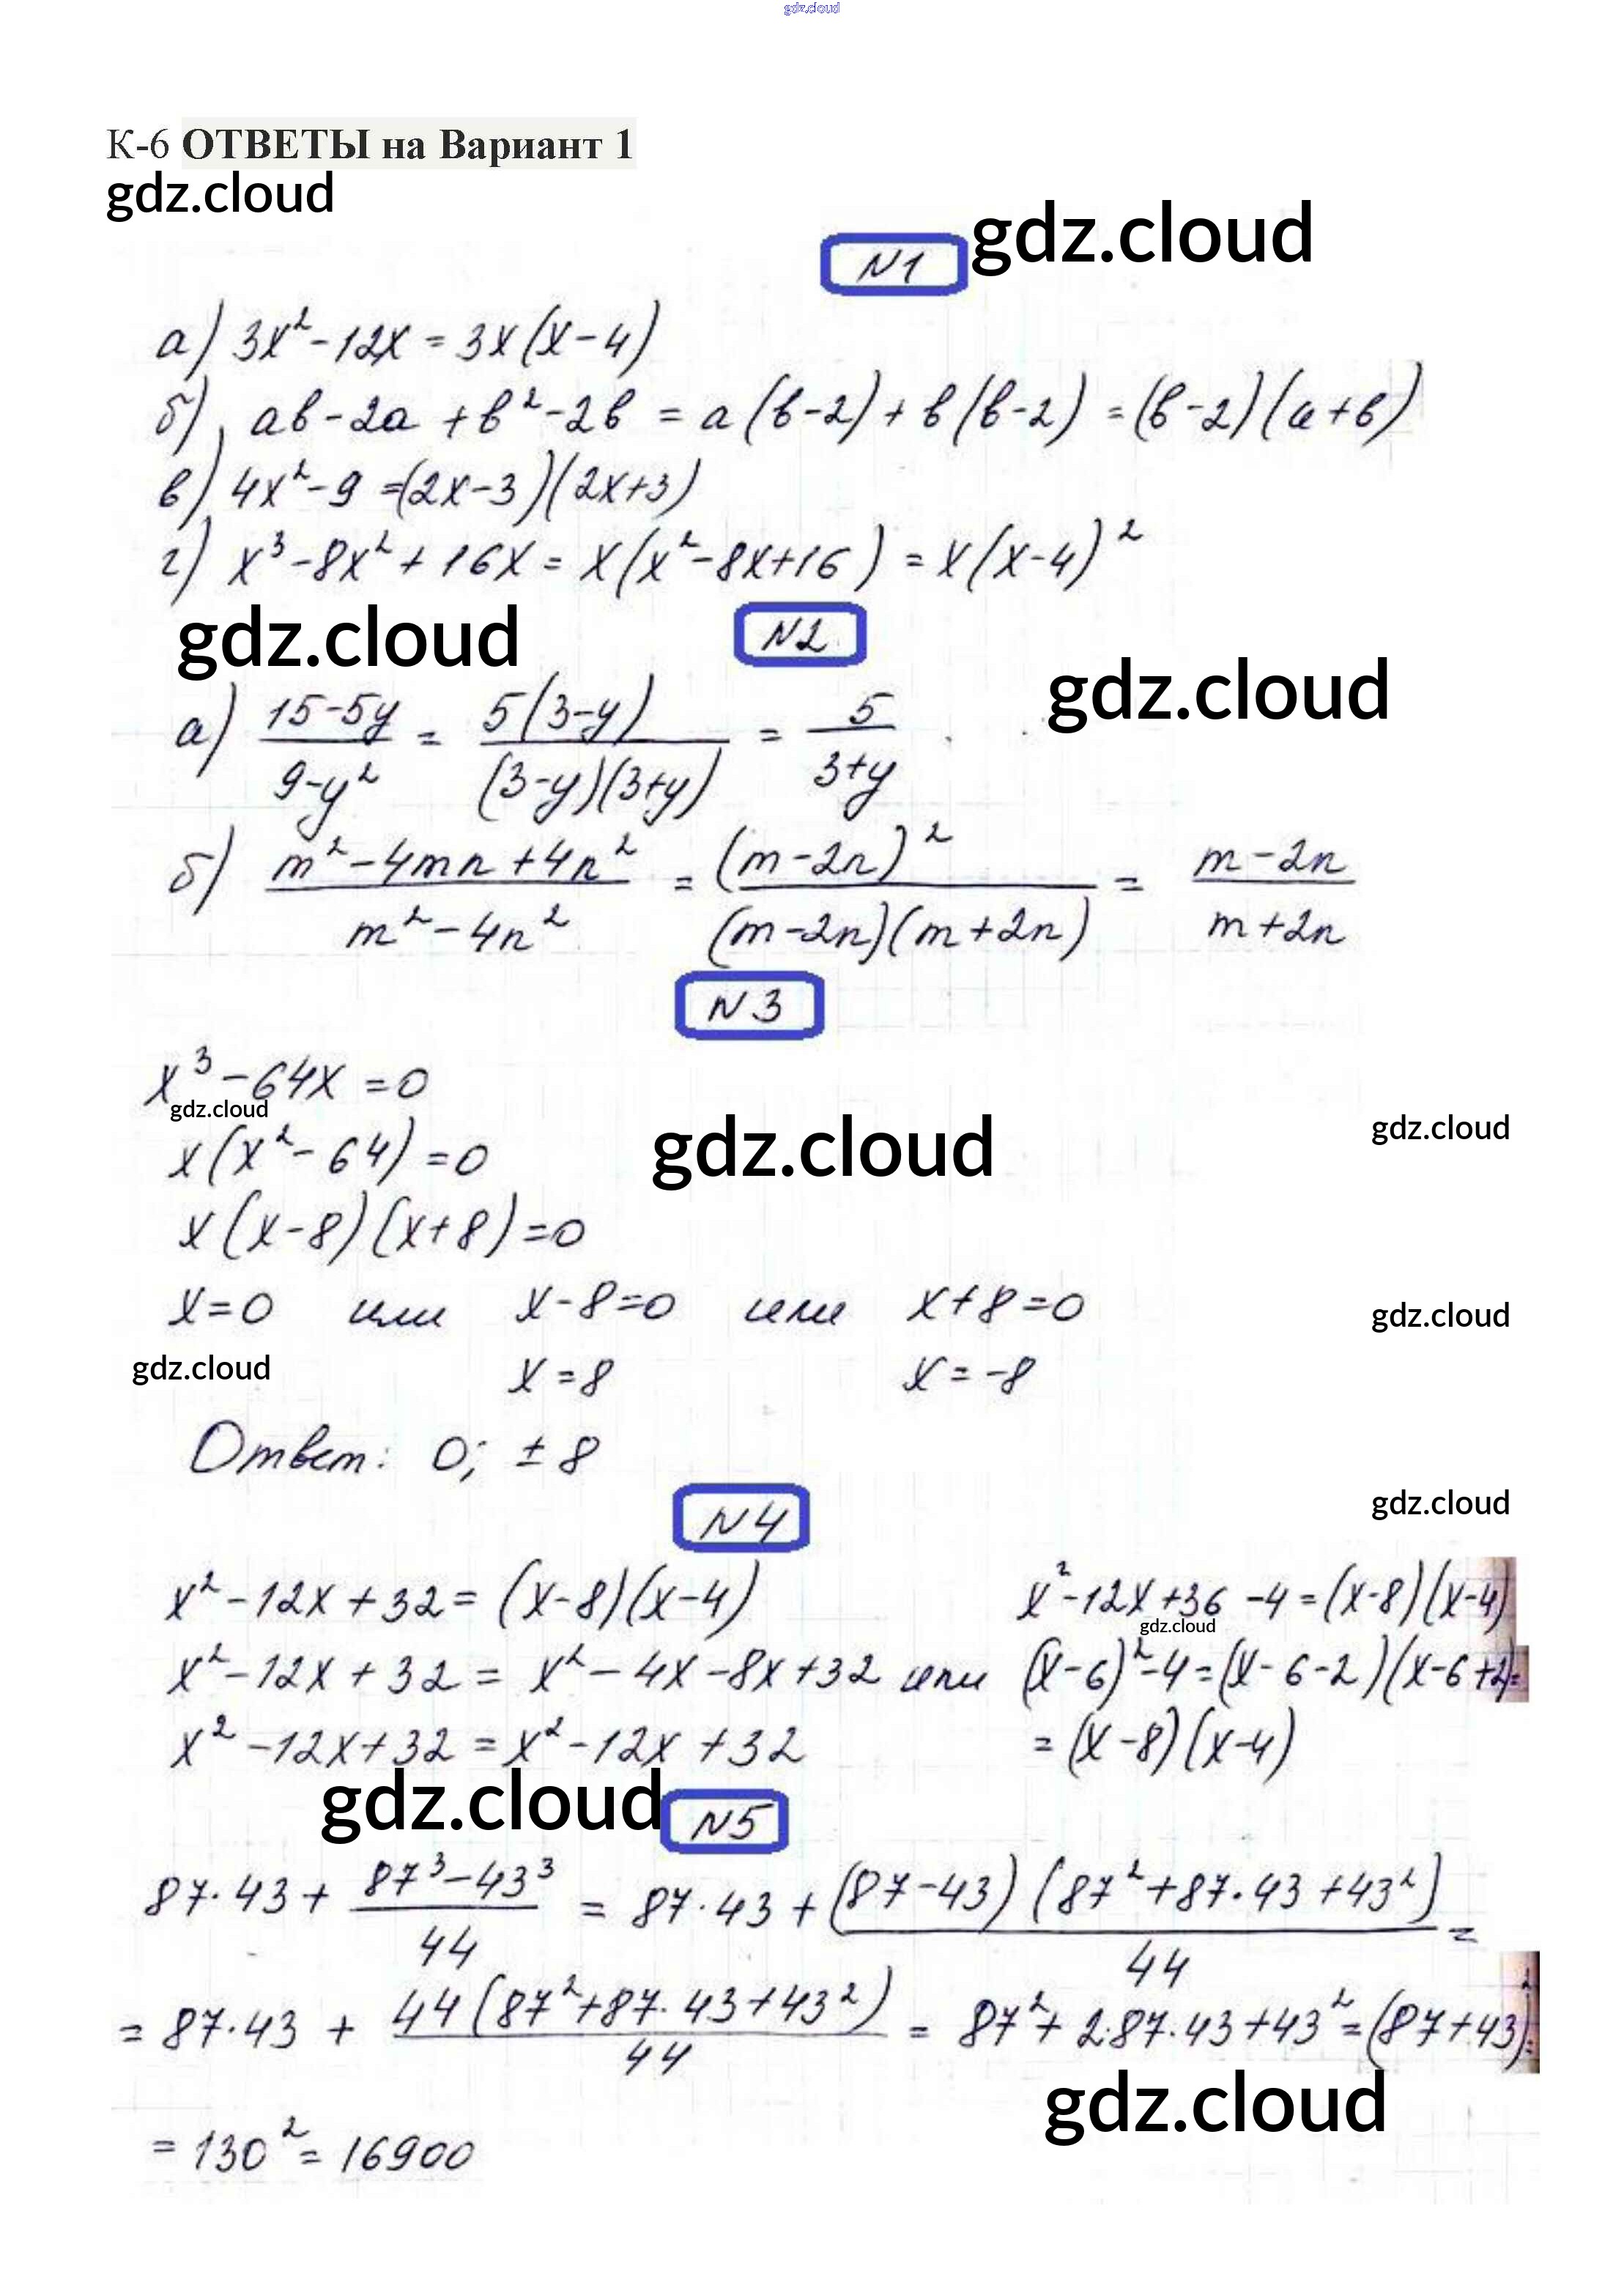 gdz.cloud
К-6 ОТВЕТЫ на Вариант 1
gdz.cloud
gdz.cloud
N1
а) 3x² - 12x = 3x(x - 4)
б) ab - 2a + b² - 2b = a(b - 2) + b(b - 2) = (b - 2)(a + b)
в) 4x² - 9 = (2x - 3)(2x + 3)
г) x³ - 8x² + 16x = x(x² - 8x + 16) = x(x - 4)²
gdz.cloud
N2
gdz.cloud
а) (15 - 5y)/(9 - y²) = 5(3 - y)/((3 - y)(3 + y)) = 5/(3 + y)
б) (m² - 4mn + 4n²)/(m² - 4n²) = (m - 2n)²/((m - 2n)(m + 2n)) = (m - 2n)/(m + 2n)
N3
x³ - 64x = 0
gdz.cloud
gdz.cloud
gdz.cloud
x(x² - 64) = 0
x(x - 8)(x + 8) = 0
x = 0 или x - 8 = 0 или x + 8 = 0
gdz.cloud
gdz.cloud
x = 8 x = -8
Ответ: 0; ± 8
N4
gdz.cloud
x² - 12x + 32 = (x - 8)(x - 4) x² - 12x + 36 - 4 = (x - 8)(x - 4)
gdz.cloud
x² - 12x + 32 = x² - 4x - 8x + 32 или (x - 6)² - 4 = (x - 6 - 2)(x - 6 + 2) =
x² - 12x + 32 = x² - 12x + 32 = (x - 8)(x - 4)
gdz.cloud
N5
87·43 + (87³ - 43³)/44 = 87·43 + (87 - 43)(87² + 87·43 + 43²)/44 =
= 87·43 + 44(87² + 87·43 + 43²)/44 = 87² + 2·87·43 + 43² = (87 + 43)² =
gdz.cloud
= 130² = 16900